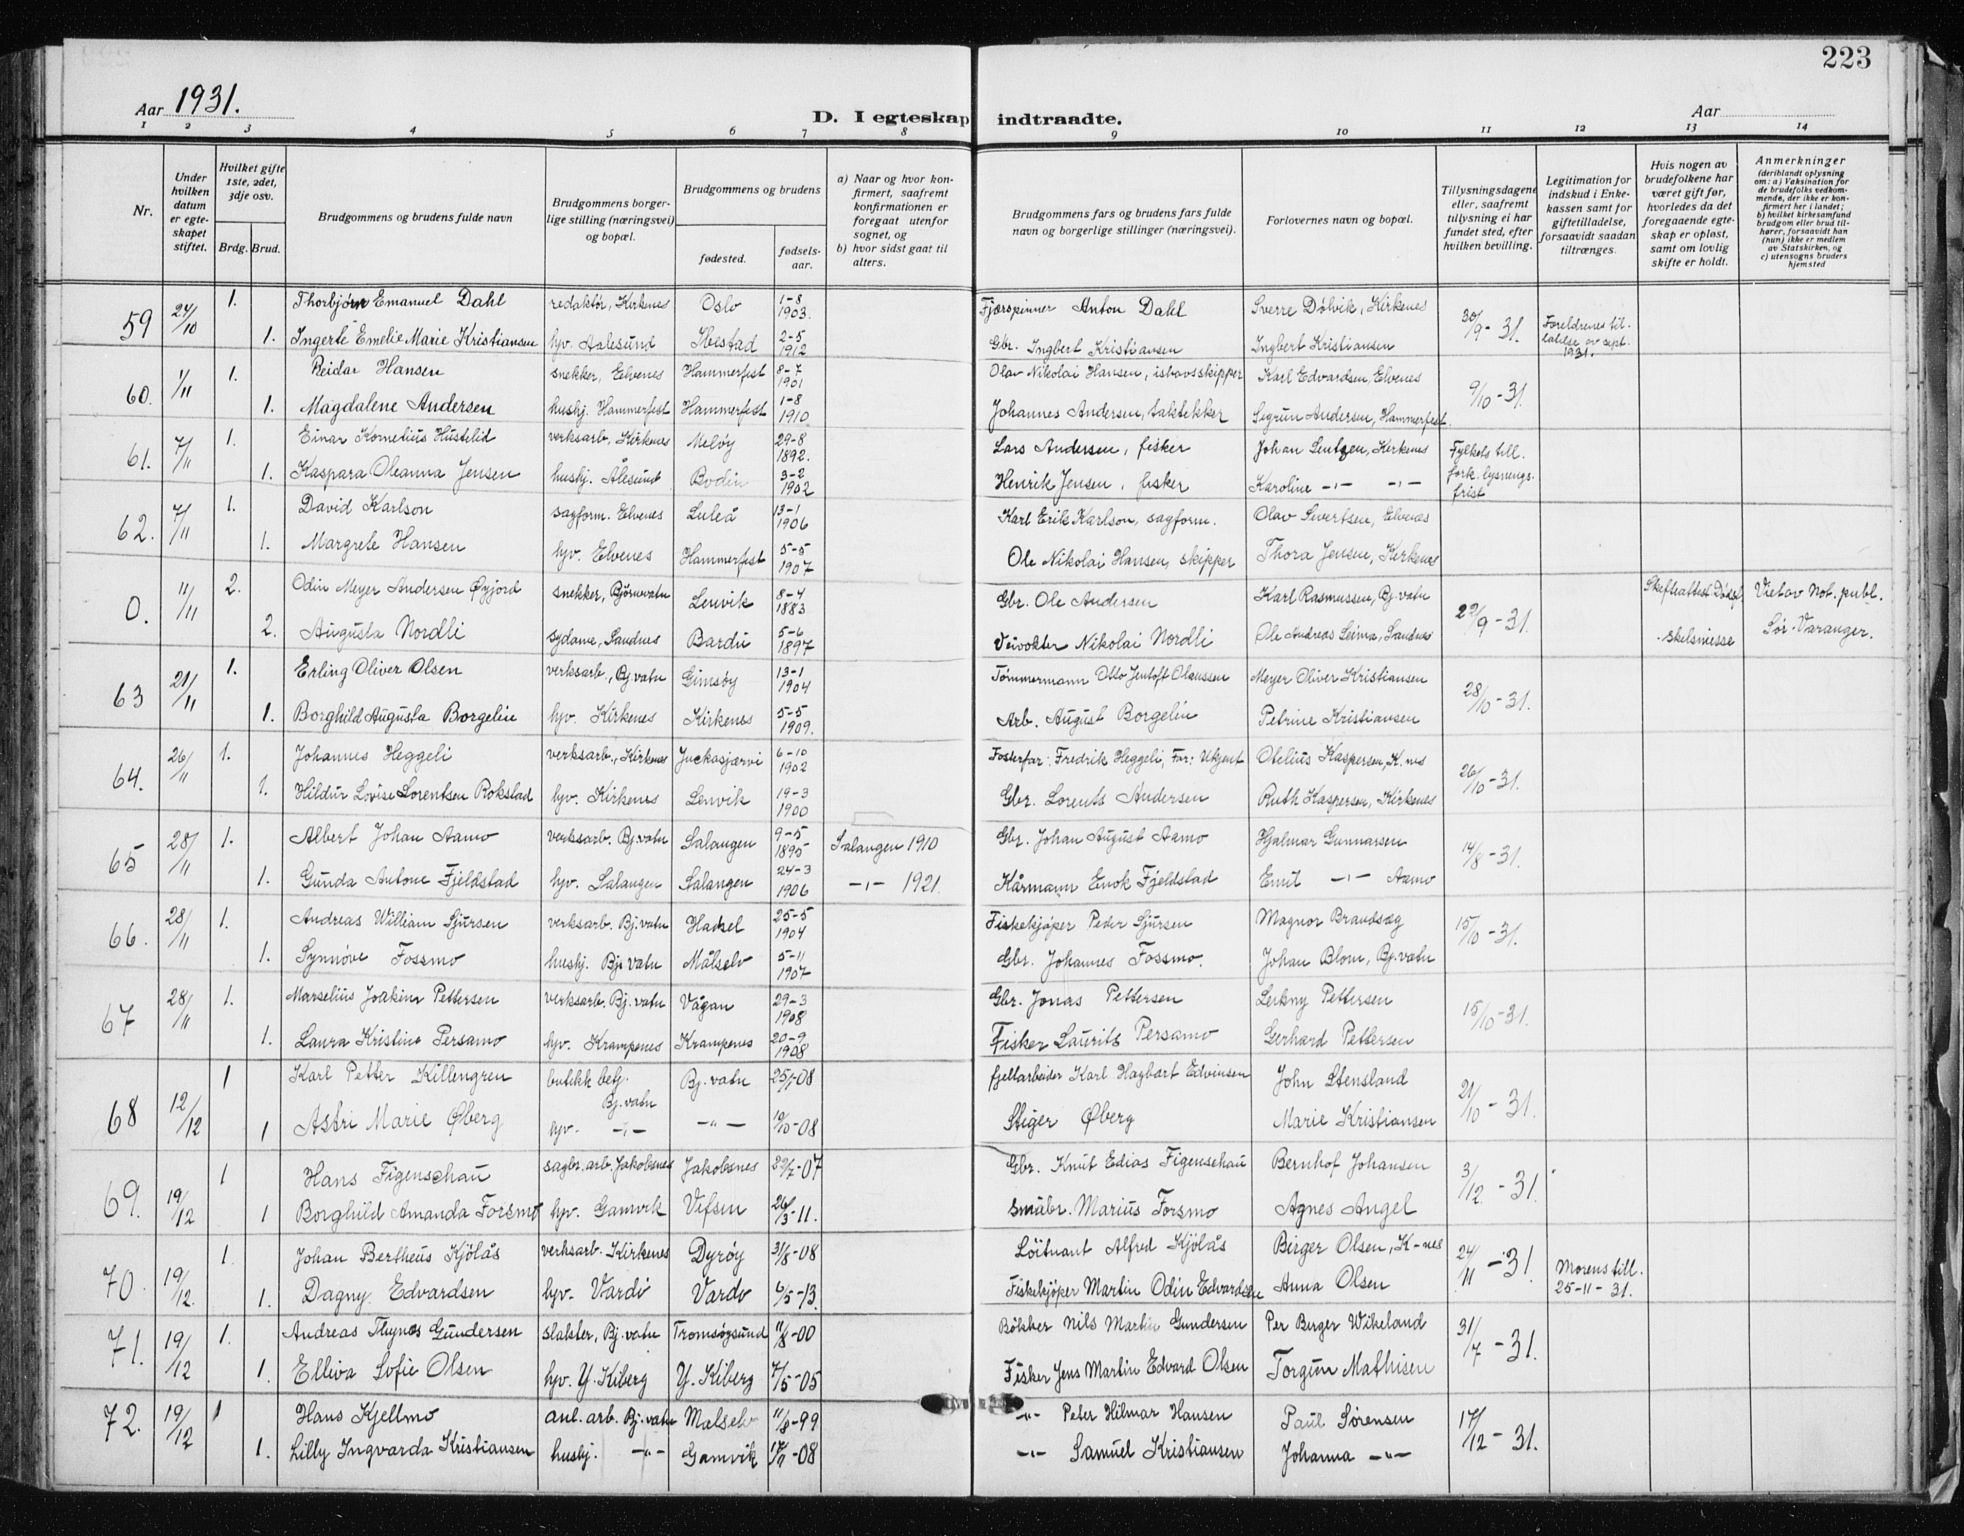 223
Aar 1931.
D. I egteskap indtraadte.
Aar
1 2 3 4 5 6 7 8 9 10 11 12 13 14
Nr.
Under hvilken datum er egteskapet stiftet.
Hvilket gifte 1ste, 2det, 3dje osv.
Brdg. Brud.
Brudgommens og brudens fulde navn
Brudgommens borgerlige stilling (næringsvei) og bopæl.
Brudgommens og brudens
fødested.
fødselsaar.
a) Naar og hvor konfirmert, saafremt konfirmationen er foregaat utenfor sognet, og
b) hvor sidst gaat til alters.
Brudgommens fars og brudens fars fulde navn og borgerlige stillinger (næringsvei).
Forlovernes navn og bopæl.
Tillysningsdagene eller, saafremt tillysning ei har fundet sted, efter hvilken bevilling.
Legitimation for indskud i Enkekassen samt for giftetilladelse, forsaavidt saadan tiltrænges.
Hvis nogen av brudefolkene har været gift før, hvorledes da det foregaaende egteskap er opløst, samt om lovlig skifte er holdt.
Anmerkninger (deriblandt oplysning om: a) Vaksination for de brudefolks vedkommende, der ikke er konfirmert her i landet; b) hvilket kirkesamfund brudgom eller brud tilhører, forsaavidt han (hun) ikke er medlem av Statskirken, og c) utensogns bruders hjemsted
59 24/10 1. Thorbjørn Emanuel Dahl redaktør, Kirkenes Oslo 1-8 1903. Fjærspinner Anton Dahl Sverre Dølvik, Kirkenes 30/9-31. Foreldrenes tillatelse av sept. 1931.
1. Ingerte Emelie Marie Kristiansen hjv. Aalesund Ibestad 2-5 1912 Gbr. Ingbert Kristiansen Ingbert Kristiansen
60. 1/11 1. Reidar Hansen snekker, Elvenes Hammerfest 8-7 1901 Olav Nikolai Hansen, ishavsskipper Karl Edvardsen, Elvenes 9/10-31.
1. Magdalene Andersen hushj. Hammerfest Hammerfest 1-8 1910. Johannes Andersen, taktekker Sigrun Andersen, Hammerfest
61. 7/11 1. Einar Kornelius Hustelid verksarb. Kirkenes Meløy 29-8 1892. Lars Andersen, fisker Johan Lentzen, Kirkenes Fylkets till. fork. lysningsfrist
1. Kaspara Oleanna Jensen hushj. Ålesund Bodin 3-2 1902 Henrik Jensen, fisker Karoline -"- -"-
62. 7/11 1. David Karlson sagform. Elvenes Luleå 13-1 1906 Karl Erik Karlson, sagform. Olav Sivertsen, Elvenes
1. Margrete Hansen hjv. Elvenes Hammerfest 5-5 1907 Ole Nikolai Hansen, skipper Thora Jensen, Kirkenes
0. 11/11 2. Odin Meyer Andersen Øyjord snekker, Bjørnevatn Lenvik 8-4 1883 Gbr. Ole Andersen Karl Rasmussen, Bj.vatn 29/9-31. Skifteattest Dødsf. Viet av Not. publ.
2. Augusta Nordli sydame, Sandnes Bardu 5-6 1897 Veivokter Nikolai Nordli Ole Andreas Leima, Sandnes skilsmisse Sør-Varanger.
63 21/11 1. Erling Oliver Olsen verksarb., Bj.vatn Gimsøy 13-1 1904 Tømmermann Otto Jentoft Olaussen Meyer Oliver Kristiansen 28/10-31.
1. Borghild Augusta Borgelin hjv. Kirkenes Kirkenes 5-5 1909. Arb. August Borgelin Petrine Kristiansen
64. 26/11 1. Johannes Heggeli verksarb., Kirkenes Juckasjærvi 6-10 1902 Fosterfar: Fredrik Heggeli, Far: Ukjent Otelius Kaspersen, K.nes 26/10-31.
1. Hildur Lovise Lorentsen Rokstad hjv. Kirkenes Lenvik 19-3 1900 Gbr. Lorents Andersen Ruth Kaspersen, Kirkenes
65 28/11 1. Albert Johan Aamo verksarb. Bj.vatn Salangen 9-5 1895 Salangen 1910 Gbr. Johan August Aamo Hjalmar Gunnarsen 14/8-31.
1. Gunda Antone Fjeldstad hjv. Salangen Salangen 24-3 1906 -"- 1921. Kårmann Enok Fjeldstad Emil -"- Aamo
66. 28/11 1. Andreas William Sjursen verksarb. Bj.vatn Hadsel 25-5 1904 Fiskekjøper Peder Sjursen Magnor Brandsæg 15/10-31.
1. Synnøve Fossmo hushj. Bj.vatn Målselv 5-11 1907 Gbr. Johannes Fossmo. Johan Blom, Bj.vatn
67 28/11 1. Marselius Joakim Pettersen verksarb. Bj.vatn Vågan 29-3 1908 Gbr. Jonas Pettersen Leikny Pettersen 15/10-31.
1. Laura Kristine Persamo hjv. Krampenes Krampenes 20-9 1908 Fisker Laurits Persamo Gerhard Pettersen
68 12/12 1 Karl Petter Killengren butikk betj. Bj.vatn Bj.vatn 25/1-08 fjellarbeider Karl Hagbart Edvinsen John Stensland 21/10-31.
1 Astri Marie Øberg hjv. -"- -"- 19/10-08 Stiger Øberg Marie Kristiansen
69. 19/12 1 Hans Figenschau sagbr.arb. Jakobsnes Jakobsnes 29/7-07 Gbr. Knut Edias Figenschau Bernhof Johansen 3/12-31.
1 Borghild Amanda Forsmo hjv. Gamvik Vefsen 26/3-11. Småbr. Marius Forsmo Agnes Angel
70. 19/12. 1 Johan Bertheus Kjölås verksarb. Kirkenes Dyrøy 31/8-08 Löitnant Alfred Kjölås Birger Olsen, K-nes 24/11-31. Morens till. 25-11-31.
1. Dagny Edvardsen hjv. Vardö Vardö 6/5-13. Fiskekjøper Martin Odin Edvardsen Anna Olsen
71. 19/12 1. Andreas Thynes Gundersen slakter, Bj.vatn Tromsøysund 11/8-00 Bökker Nils Martin Gundersen Per Birger Wikeland 31/7-31.
1. Elliva Sofie Olsen hjv. Y. Kiberg Y. Kiberg 7/5-05 Fisker Jens Martin Edvard Olsen Torgun Mathisen
72. 19/12 1 Hans Kjellmo anl. arb. Bj.vatn Målselv 11/8-99 -"- Peter Hilmar Hansen Paul Sørensen 17/12-31.
1. Lilly Ingvarda Kristiansen hushj. -"- Gamvik 17/11-08 -"- Samuel Kristiansen Johanna -"-